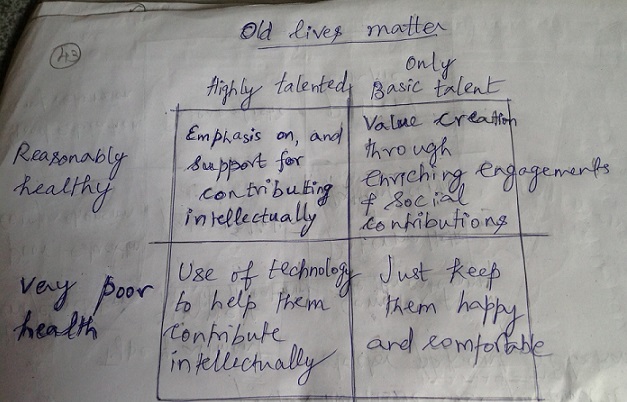 Old lives matter
43
Highly talented
Only
Basic talent
Reasonably
healthy
Emphasis on, and
support for
contributing
intellectually
Value creation
through
enriching engagements
& social
contributions
Very poor
health
Use of technology
to help them
contribute
intellectually
Just keep
them happy
and comfortable